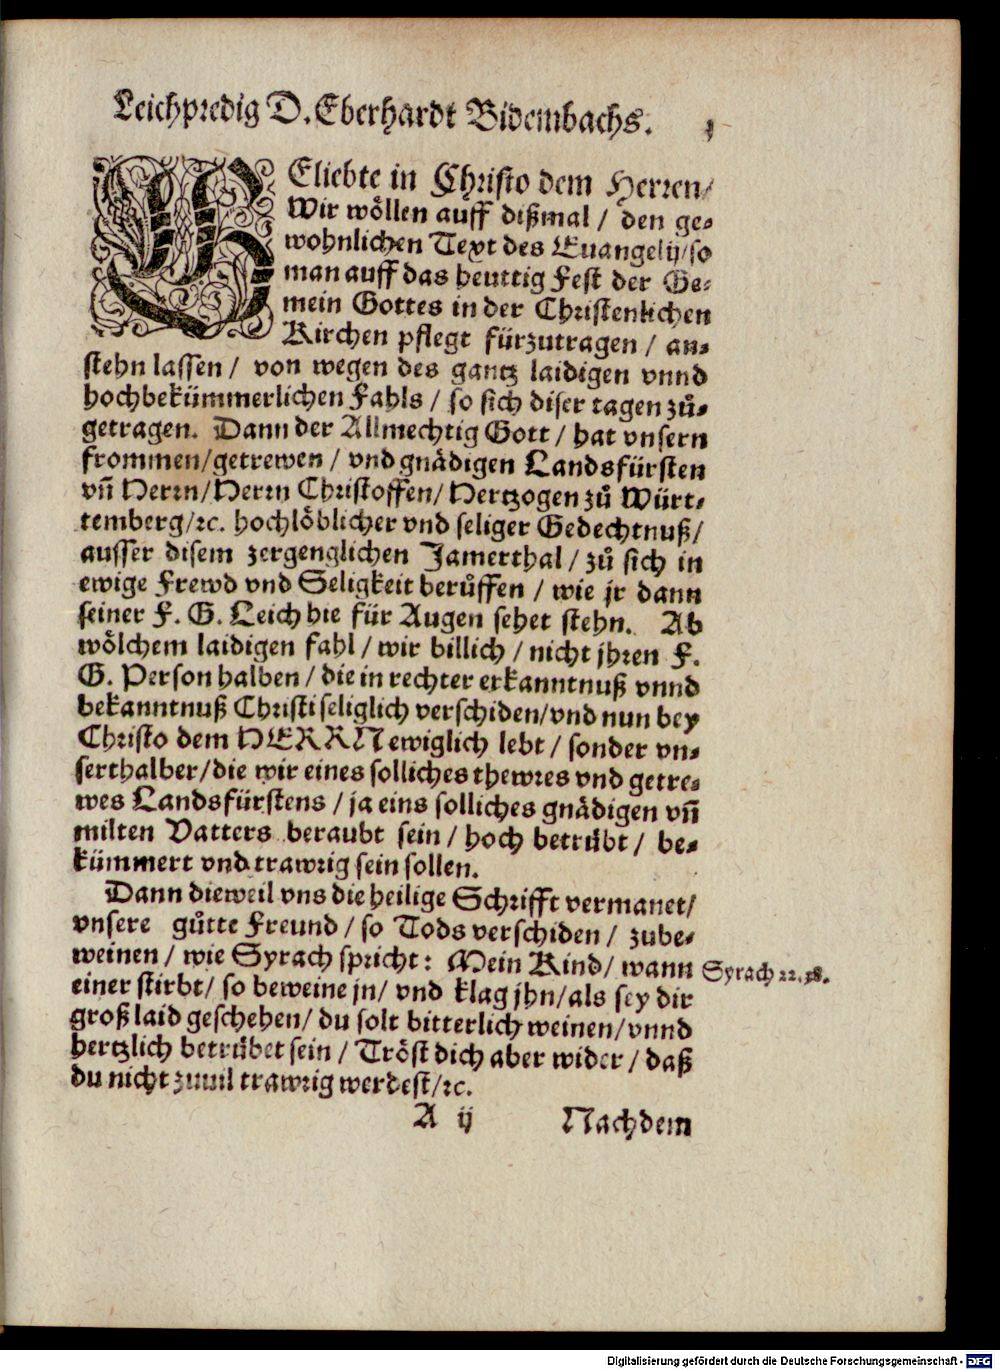 Leichpredig D. Eberhardt Bidembachs.
GEliebte in Christo dem Herren/
Wir wöllen auff dißmal / den ge-
wohnlichen Text des Euangelij/so
man auff das heuttig Fest der Ge-
mein Gottes in der Christenlichen
Kirchen pflegt fürzutragen / an-
stehn lassen / von wegen des gantz laidigen vnnd
hochbekümmerlichen Fahls / so sich diser tagen zů-
getragen. Dann der Allmechtig Gott / hat vnsern
frommen/getrewen / vnd gnädigen Landsfürsten
vñ Herrn/Herrn Christoffen/ Hertzogen zů Würt-
temberg/ꝛc. hochlöblicher vnd seliger Gedechtnuß/
ausser disem zergenglichen Jamerthal / zů sich in
ewige Frewd vnd Seligkeit berůffen / wie jr dann
seiner F. G. Leich hie für Augen sehet stehn. Ab
wölchem laidigen fahl / wir billich / nicht jhren F.
G. Person halben / die in rechter erkanntnuß vnnd
bekanntnuß Christi seliglich verschiden/vnd nun bey
Christo dem HERRN ewiglich lebt / sonder vn-
serthalber/die wir eines solliches thewres vnd getre-
wes Landsfürstens / ja eins solliches gnädigen vñ
milten Vatters beraubt sein / hoch betrübt / be-
kümmert vnd trawrig sein sollen.
Dann dieweil vns die heilige Schrifft vermanet/
vnsere gůtte Freund / so Tods verschiden / zube-
weinen / wie Syrach spricht: Mein Kind/ wann
Syrach 22. 38.
einer stirbt/ so beweine jn/ vnd klag jhn/als sey dir
groß laid geschehen/ du solt bitterlich weinen/vnnd
hertzlich betrübet sein / Tröst dich aber wider / daß
du nicht zuuil trawrig werdest/ꝛc.
A ij Nachdem
Digitalisierung gefördert durch die Deutsche Forschungsgemeinschaft - DFG